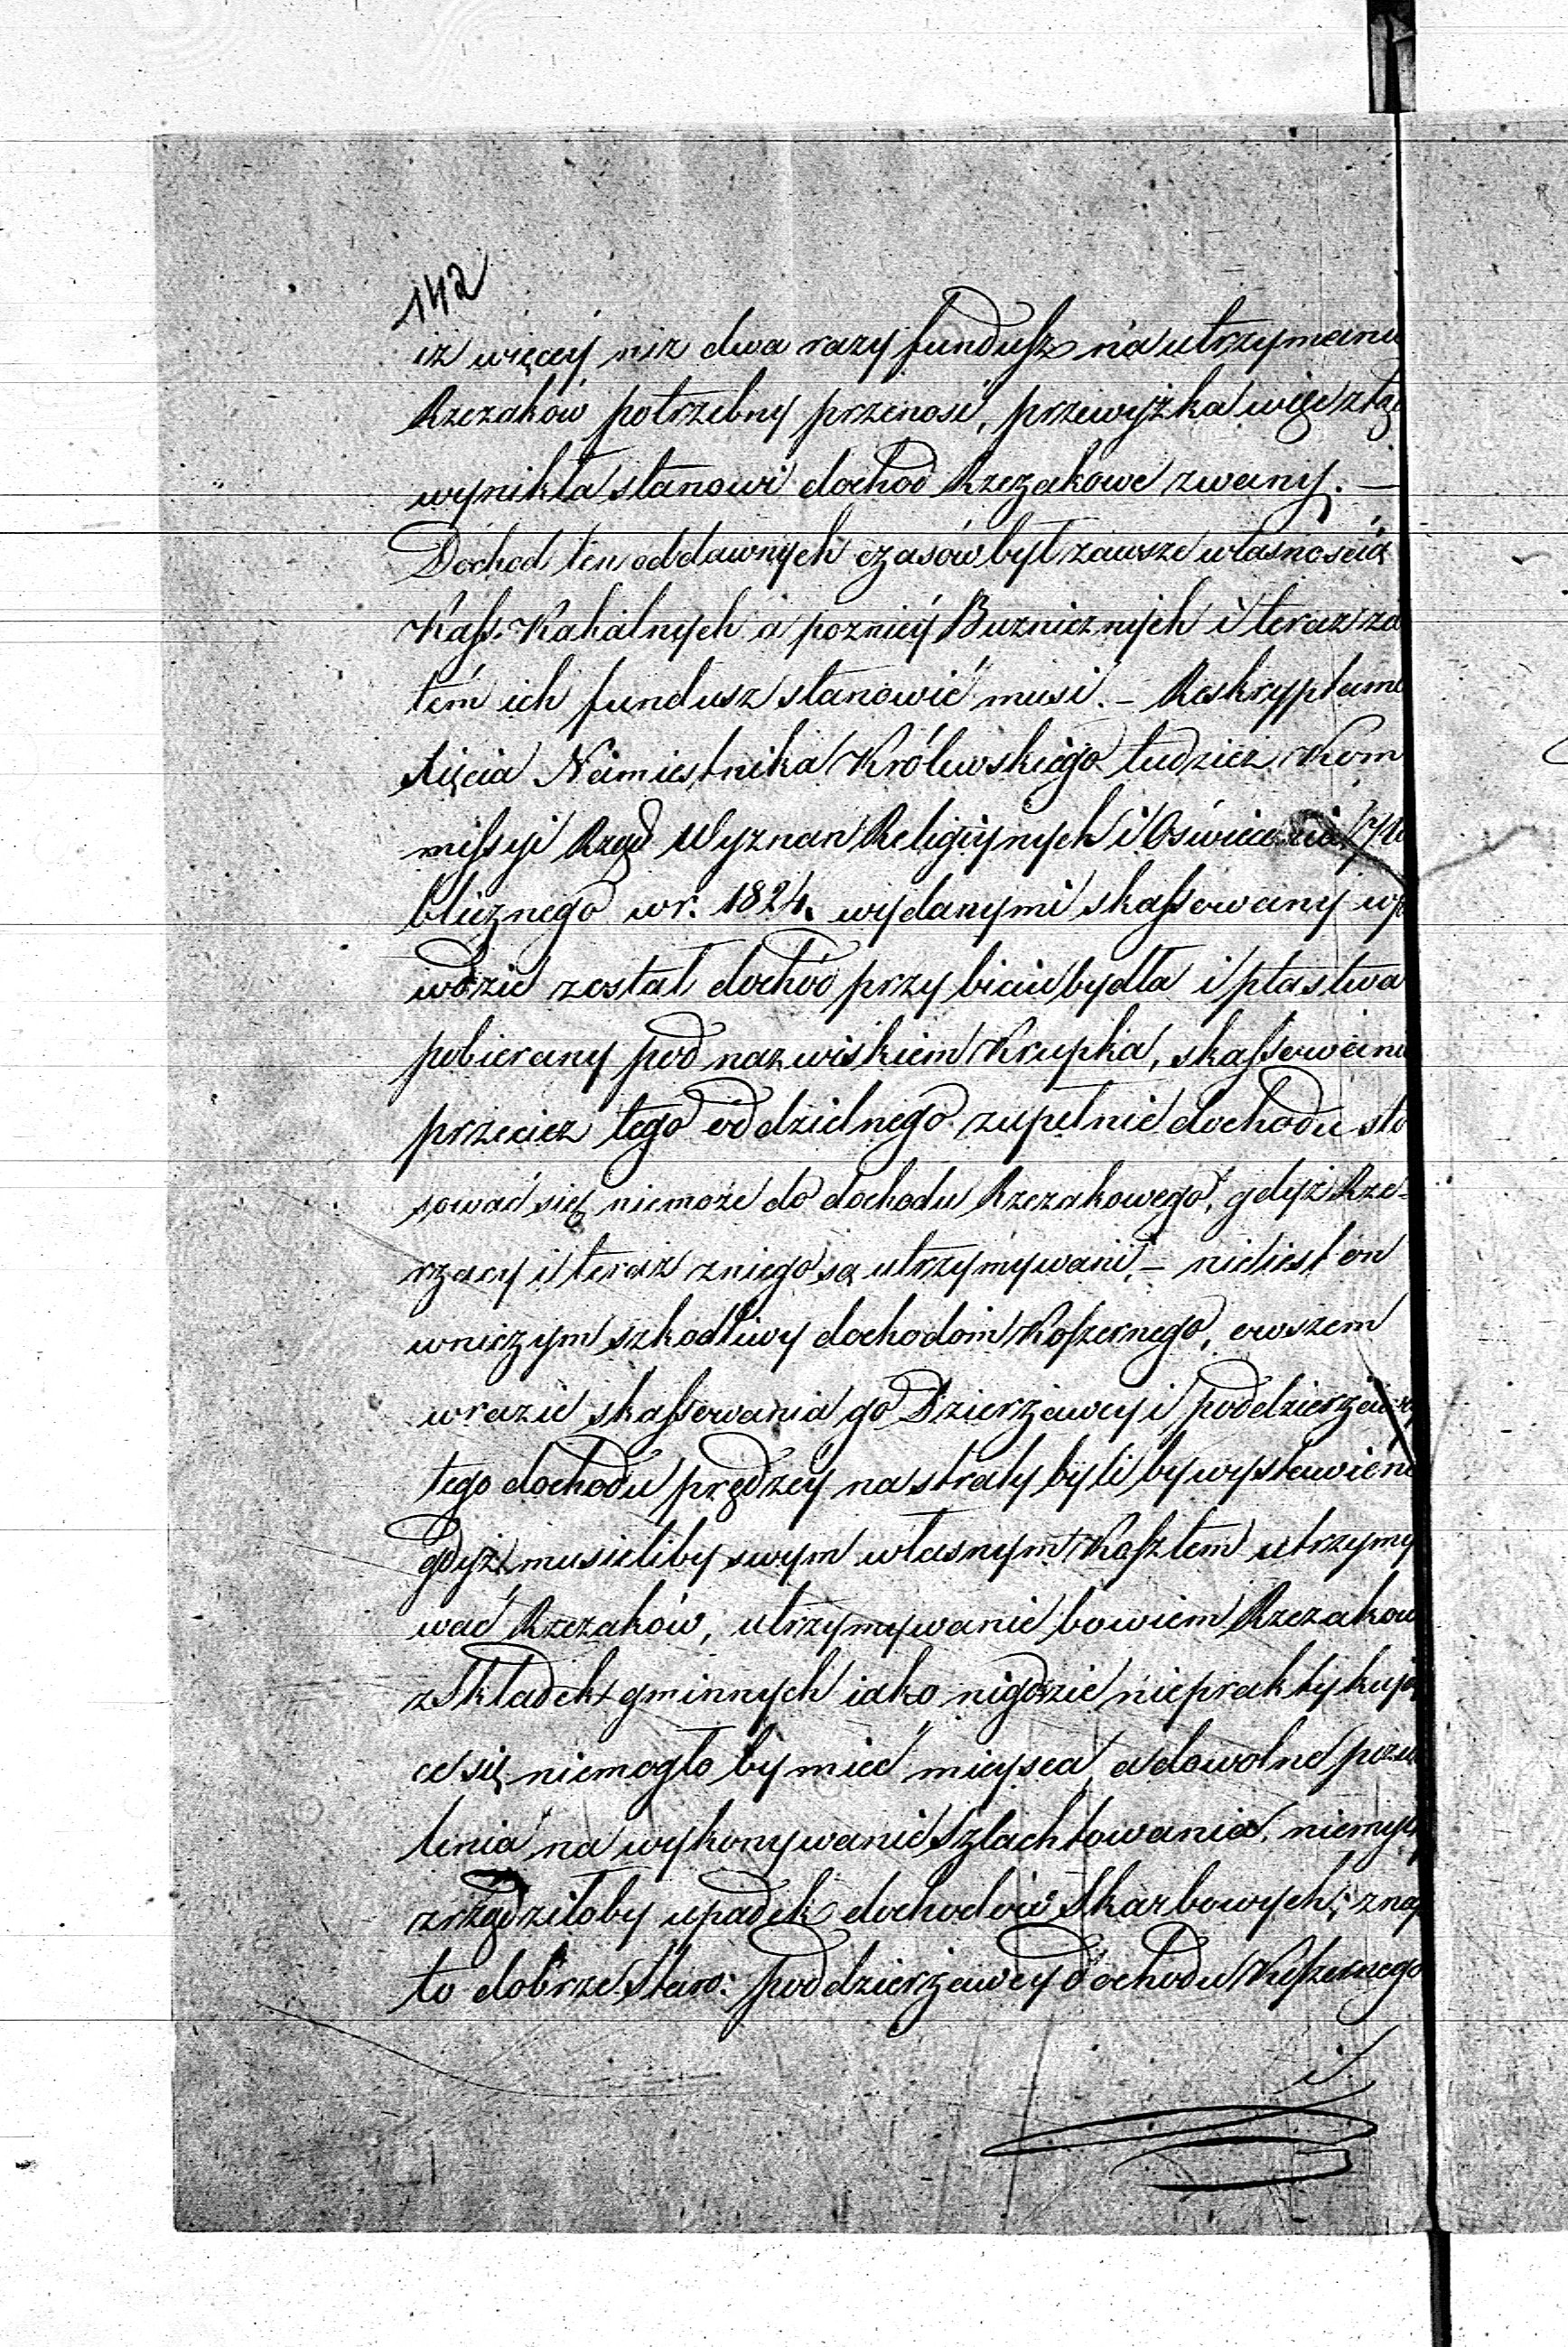 142
iż więcéy niż dwa razy fundusz na utrzymanie
Rzezaków potrzebny przenosi, przewyżka więc ztąd
wynikła stanowi dochod Rzezakowe zwany. —
Dochod ten oddawnych czasów był zawsze własnością
Kass. Kahalnych a pozniéy Buzniczných i teraz za
tém ich fundusz stanowić musi. – Reskryptami
Xięcia Namiestnika Królewskiego tudzież Kom
missyi Rząd Wyznan Religiynych i Oświecenia Pu
blicznego w r. 1824. wydanymi skassowany w
wdzie został dochód przy biciu bydła i ptastwa
pobierany pod nazwiskiem Krupka, skassowanie
przeciez tego oddzielnego zupełnie dochodu sto
sować się niemoże do dochodu Rzezakowego, gdyż Rze-
rzacy i teraz zniego są utrzymywani, – nieiest on
wniczym szkodliwy dochodom Koszernego, owszem
wrazie skassowania go Dzierzawcy i poddzierzawcy
tego dochodu prędzéy na straty byliby wystawieni
gdyż musieliby swym własnym Kosztem utrzymy
wać Rzezaków, utrzymywanie bowiem Rzezakow
z Składek gminnych iako nigdzie niepraktykują
ce się niemogłoby mieć mieysca, a dowolne pozwo
lenia na wykonywanie Szlachtowania, niemyl
zrządziłoby upadek dochodów Skarbowych, znaj
to dobrze Staro: poddzierzawcy dochodu Koszernego
i